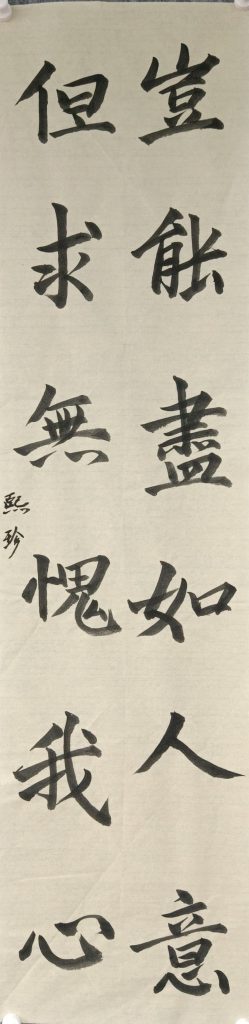 豈能盡如人意
但求無愧我心
熙珍